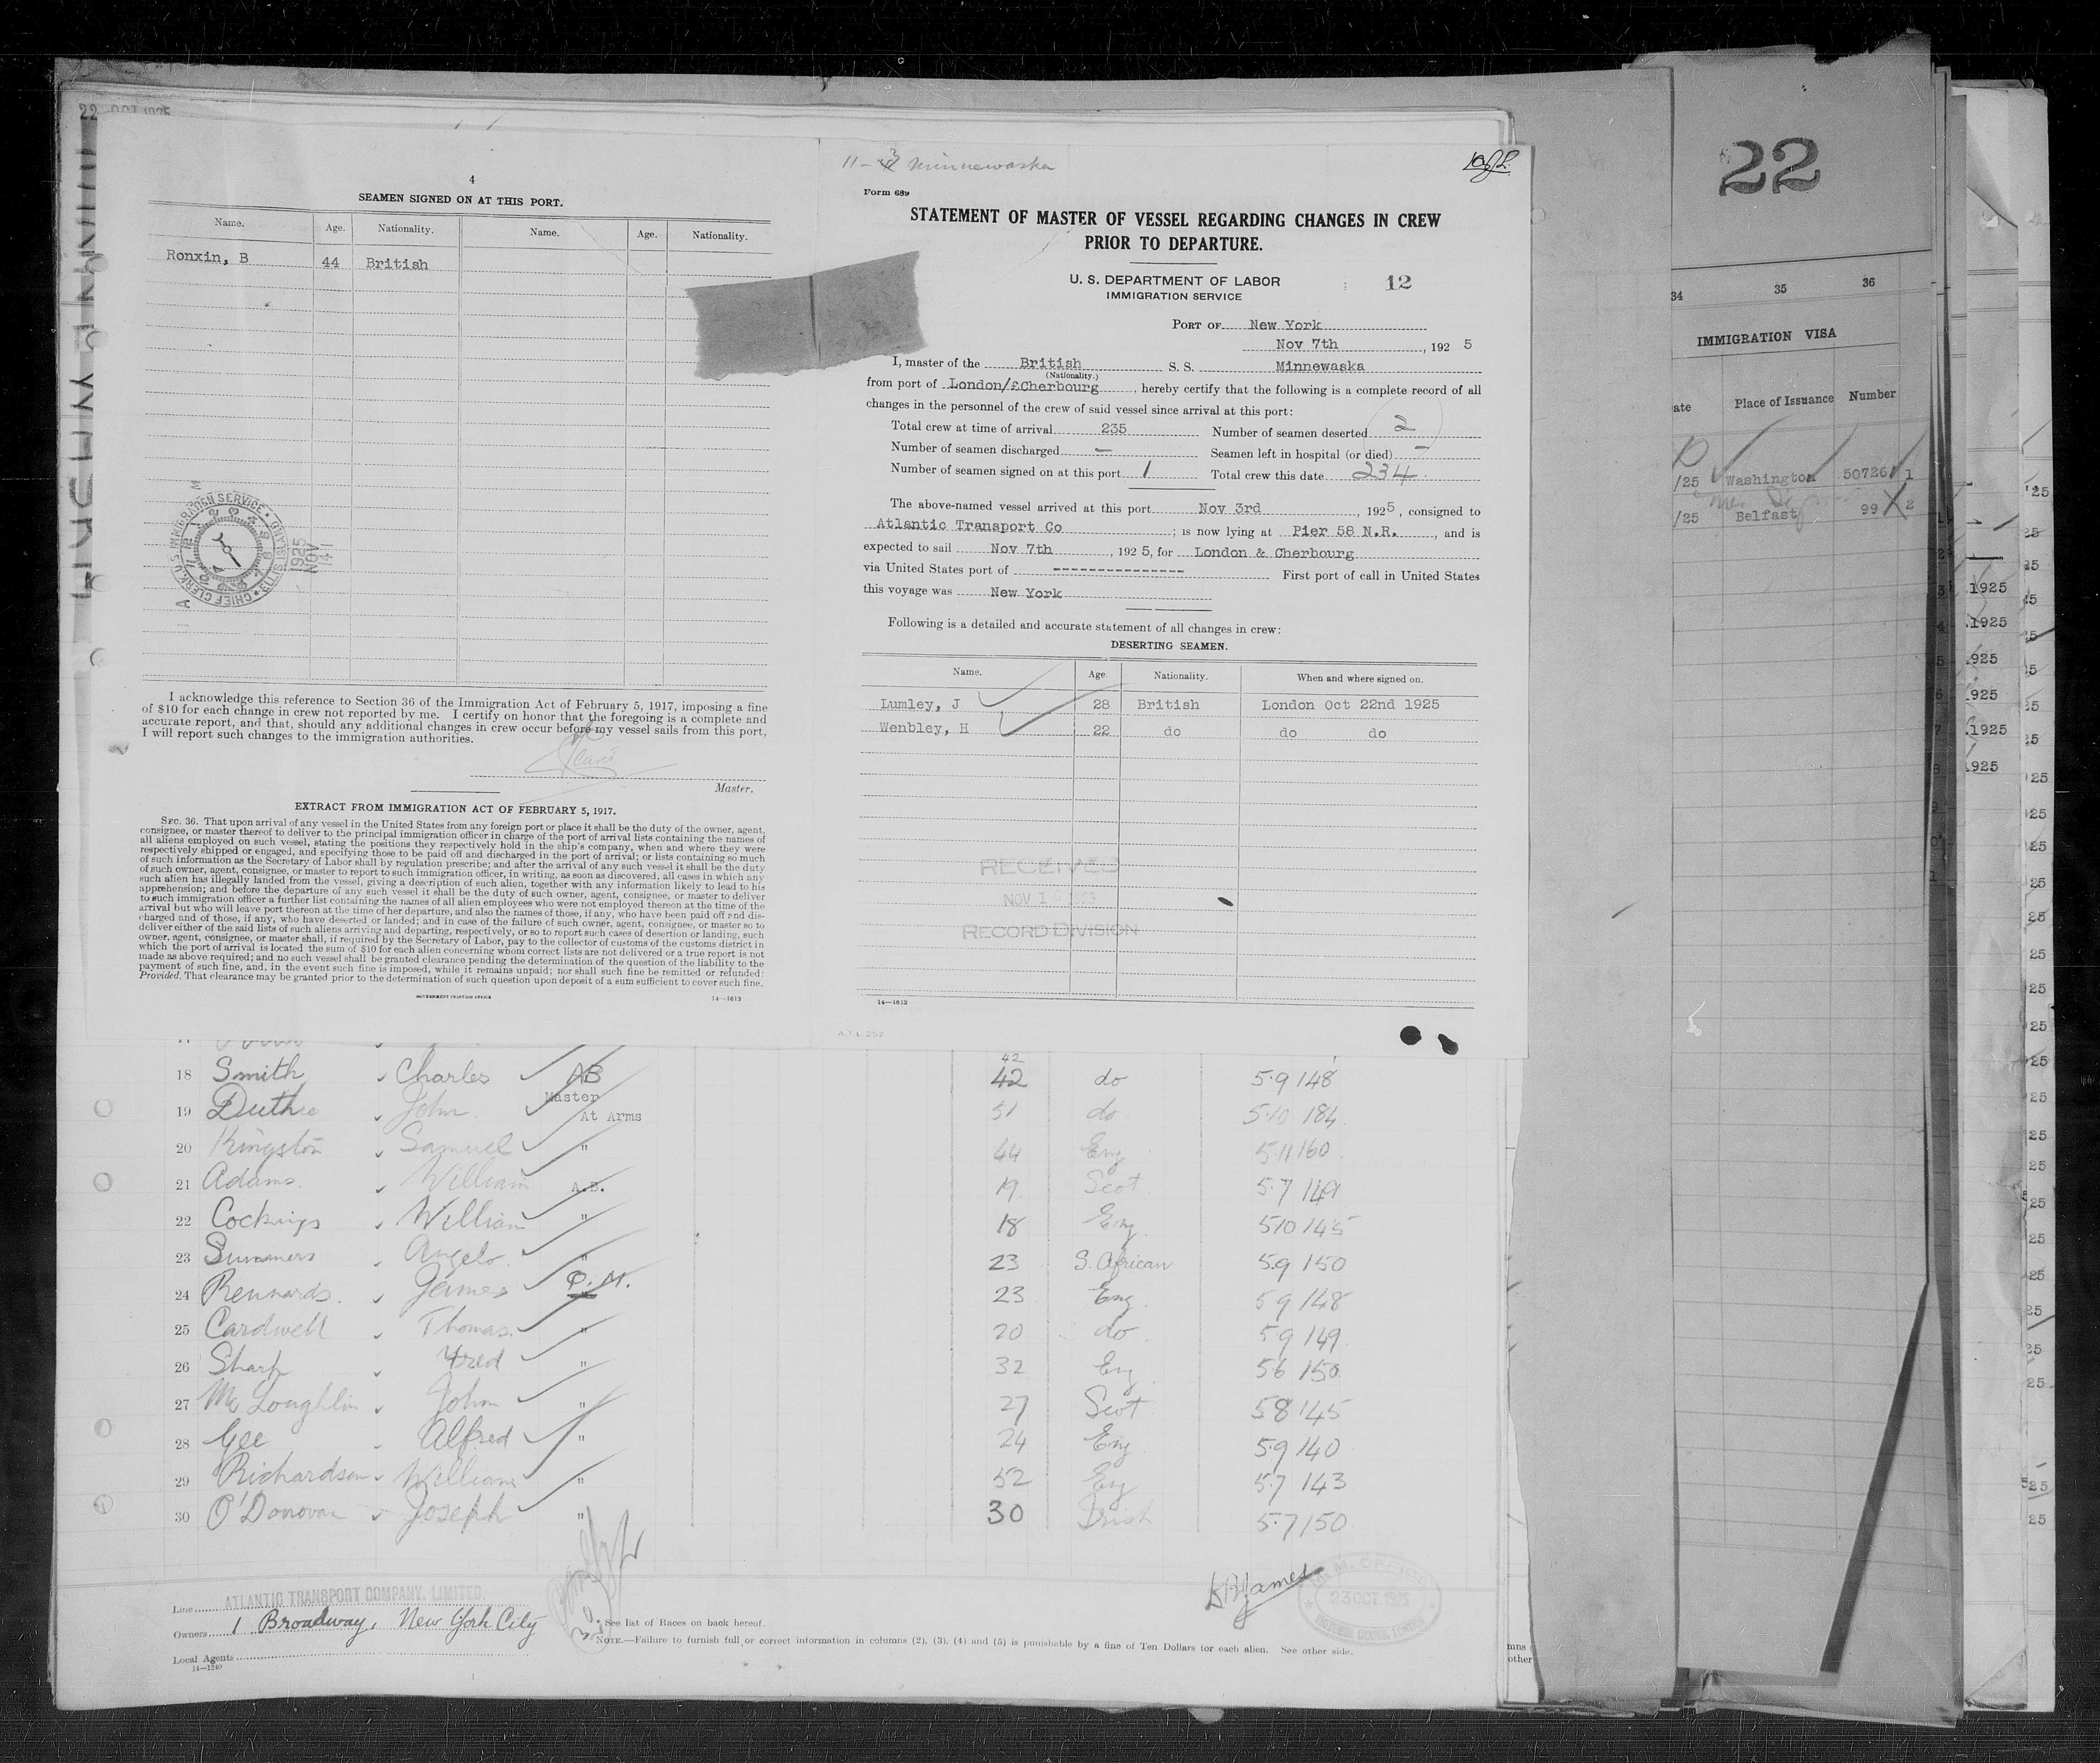 22 OCT 1925
4
SEAMEN SIGNED ON AT THIS PORT.
Name. Age. Nationality. Name. Age. Nationality.
Ronxin, B 44 British
CHIEF CLERK, U.S. IMMIGRATION SERVICE • ELLIS ISLAND
1925
NOV
I acknowledge this reference to Section 36 of the Immigration Act of February 5, 1917, imposing a fine
of $10 for each change in crew not reported by me. I certify on honor that the foregoing is a complete and
accurate report, and that, should any additional changes in crew occur before my vessel sails from this port,
I will report such changes to the immigration authorities.
Master.
EXTRACT FROM IMMIGRATION ACT OF FEBRUARY 5, 1917.
SEC. 36. That upon arrival of any vessel in the United States from any foreign port or place it shall be the duty of the owner, agent,
consignee, or master thereof to deliver to the principal immigration officer in charge of the port of arrival lists containing the names of
all aliens employed on such vessel, stating the positions they respectively hold in the ship's company, when and where they were
respectively shipped or engaged, and specifying those to be paid off and discharged in the port of arrival; or lists containing so much
of such information as the Secretary of Labor shall by regulation prescribe; and after the arrival of any such vessel it shall be the duty
of such owner, agent, consignee, or master to report to such immigration officer, in writing, as soon as discovered, all cases in which any
such alien has illegally landed from the vessel, giving a description of such alien, together with any information likely to lead to his
apprehension; and before the departure of any such vessel it shall be the duty of such owner, agent, consignee, or master to deliver
to such immigration officer a further list containing the names of all alien employees who were not employed thereon at the time of the
arrival but who will leave port thereon at the time of her departure, and also the names of those, if any, who have been paid off and dis-
charged and of those, if any, who have deserted or landed; and in case of the failure of such owner, agent, consignee, or master so to
deliver either of the said lists of such aliens arriving and departing, respectively, or so to report such cases of desertion or landing, such
owner, agent, consignee, or master shall, if required by the Secretary of Labor, pay to the collector of customs of the customs district in
which the port of arrival is located the sum of $10 for each alien concerning whom correct lists are not delivered or a true report is not
made as above required; and no such vessel shall be granted clearance pending the determination of the question of the liability to the
payment of such fine, and, in the event such fine is imposed, while it remains unpaid; nor shall such fine be remitted or refunded:
Provided, That clearance may be granted prior to the determination of such question upon deposit of a sum sufficient to cover such fine.
GOVERNMENT PRINTING OFFICE 14—1613
Minnewaska
Form 689
STATEMENT OF MASTER OF VESSEL REGARDING CHANGES IN CREW
PRIOR TO DEPARTURE.
U. S. DEPARTMENT OF LABOR
IMMIGRATION SERVICE
12
PORT OF New York
Nov 7th, 1925
I, master of the British S. S. Minnewaska
(Nationality.)
from port of London/£Cherbourg, hereby certify that the following is a complete record of all
changes in the personnel of the crew of said vessel since arrival at this port:
Total crew at time of arrival 235 Number of seamen deserted 2
Number of seamen discharged — Seamen left in hospital (or died) —
Number of seamen signed on at this port 1 Total crew this date 234
The above-named vessel arrived at this port Nov 3rd, 1925, consigned to
Atlantic Transport Co; is now lying at Pier 58 N.R., and is
expected to sail Nov 7th, 1925, for London & Cherbourg
via United States port of --------------- First port of call in United States
this voyage was New York
Following is a detailed and accurate statement of all changes in crew:
DESERTING SEAMEN.
Name. Age Nationality. When and where signed on.
Lumley, J 28 British London Oct 22nd 1925
Wenbley, H 22 do do do
RECEIVED
NOV 1
RECORD DIVISION
14—1613
18 Smith Charles AB 42 do 5.9 148
19 Duthie John Master At Arms 51 do 5.10 184
20 Kingston Samuel " 44 Eng 5.11 160
21 Adams William A.B. 19 Scot 5.7 149
22 Cockings William " 18 Eng 5.10 145
23 Summers Angelo " 23 S. African 5.9 150
24 Rennards James Q.M. 23 Eng 5.9 148
25 Cardwell Thomas " 20 do 5.9 149
26 Sharp Fred " 32 Eng 5.6 150
27 McLoughlin John " 27 Scot 5.8 145
28 Gee Alfred " 24 Eng 5.9 140
29 Richardson William " 52 Eng 5.7 143
30 O'Donovan Joseph " 30 Irish 5.7 150
Line ATLANTIC TRANSPORT COMPANY, LIMITED
Owners 1 Broadway, New York City
Local Agents
14—1240
See list of Races on back hereof.
NOTE.—Failure to furnish full or correct information in columns (2), (3), (4) and (5) is punishable by a fine of Ten Dollars for each alien. See other side.
James
23 OCT 1925
22
34 35 36
IMMIGRATION VISA
Place of Issuance Number
/25 Washington 50726 1
/25 Belfast 99 2
1925
.1925
925
925
.1925
925